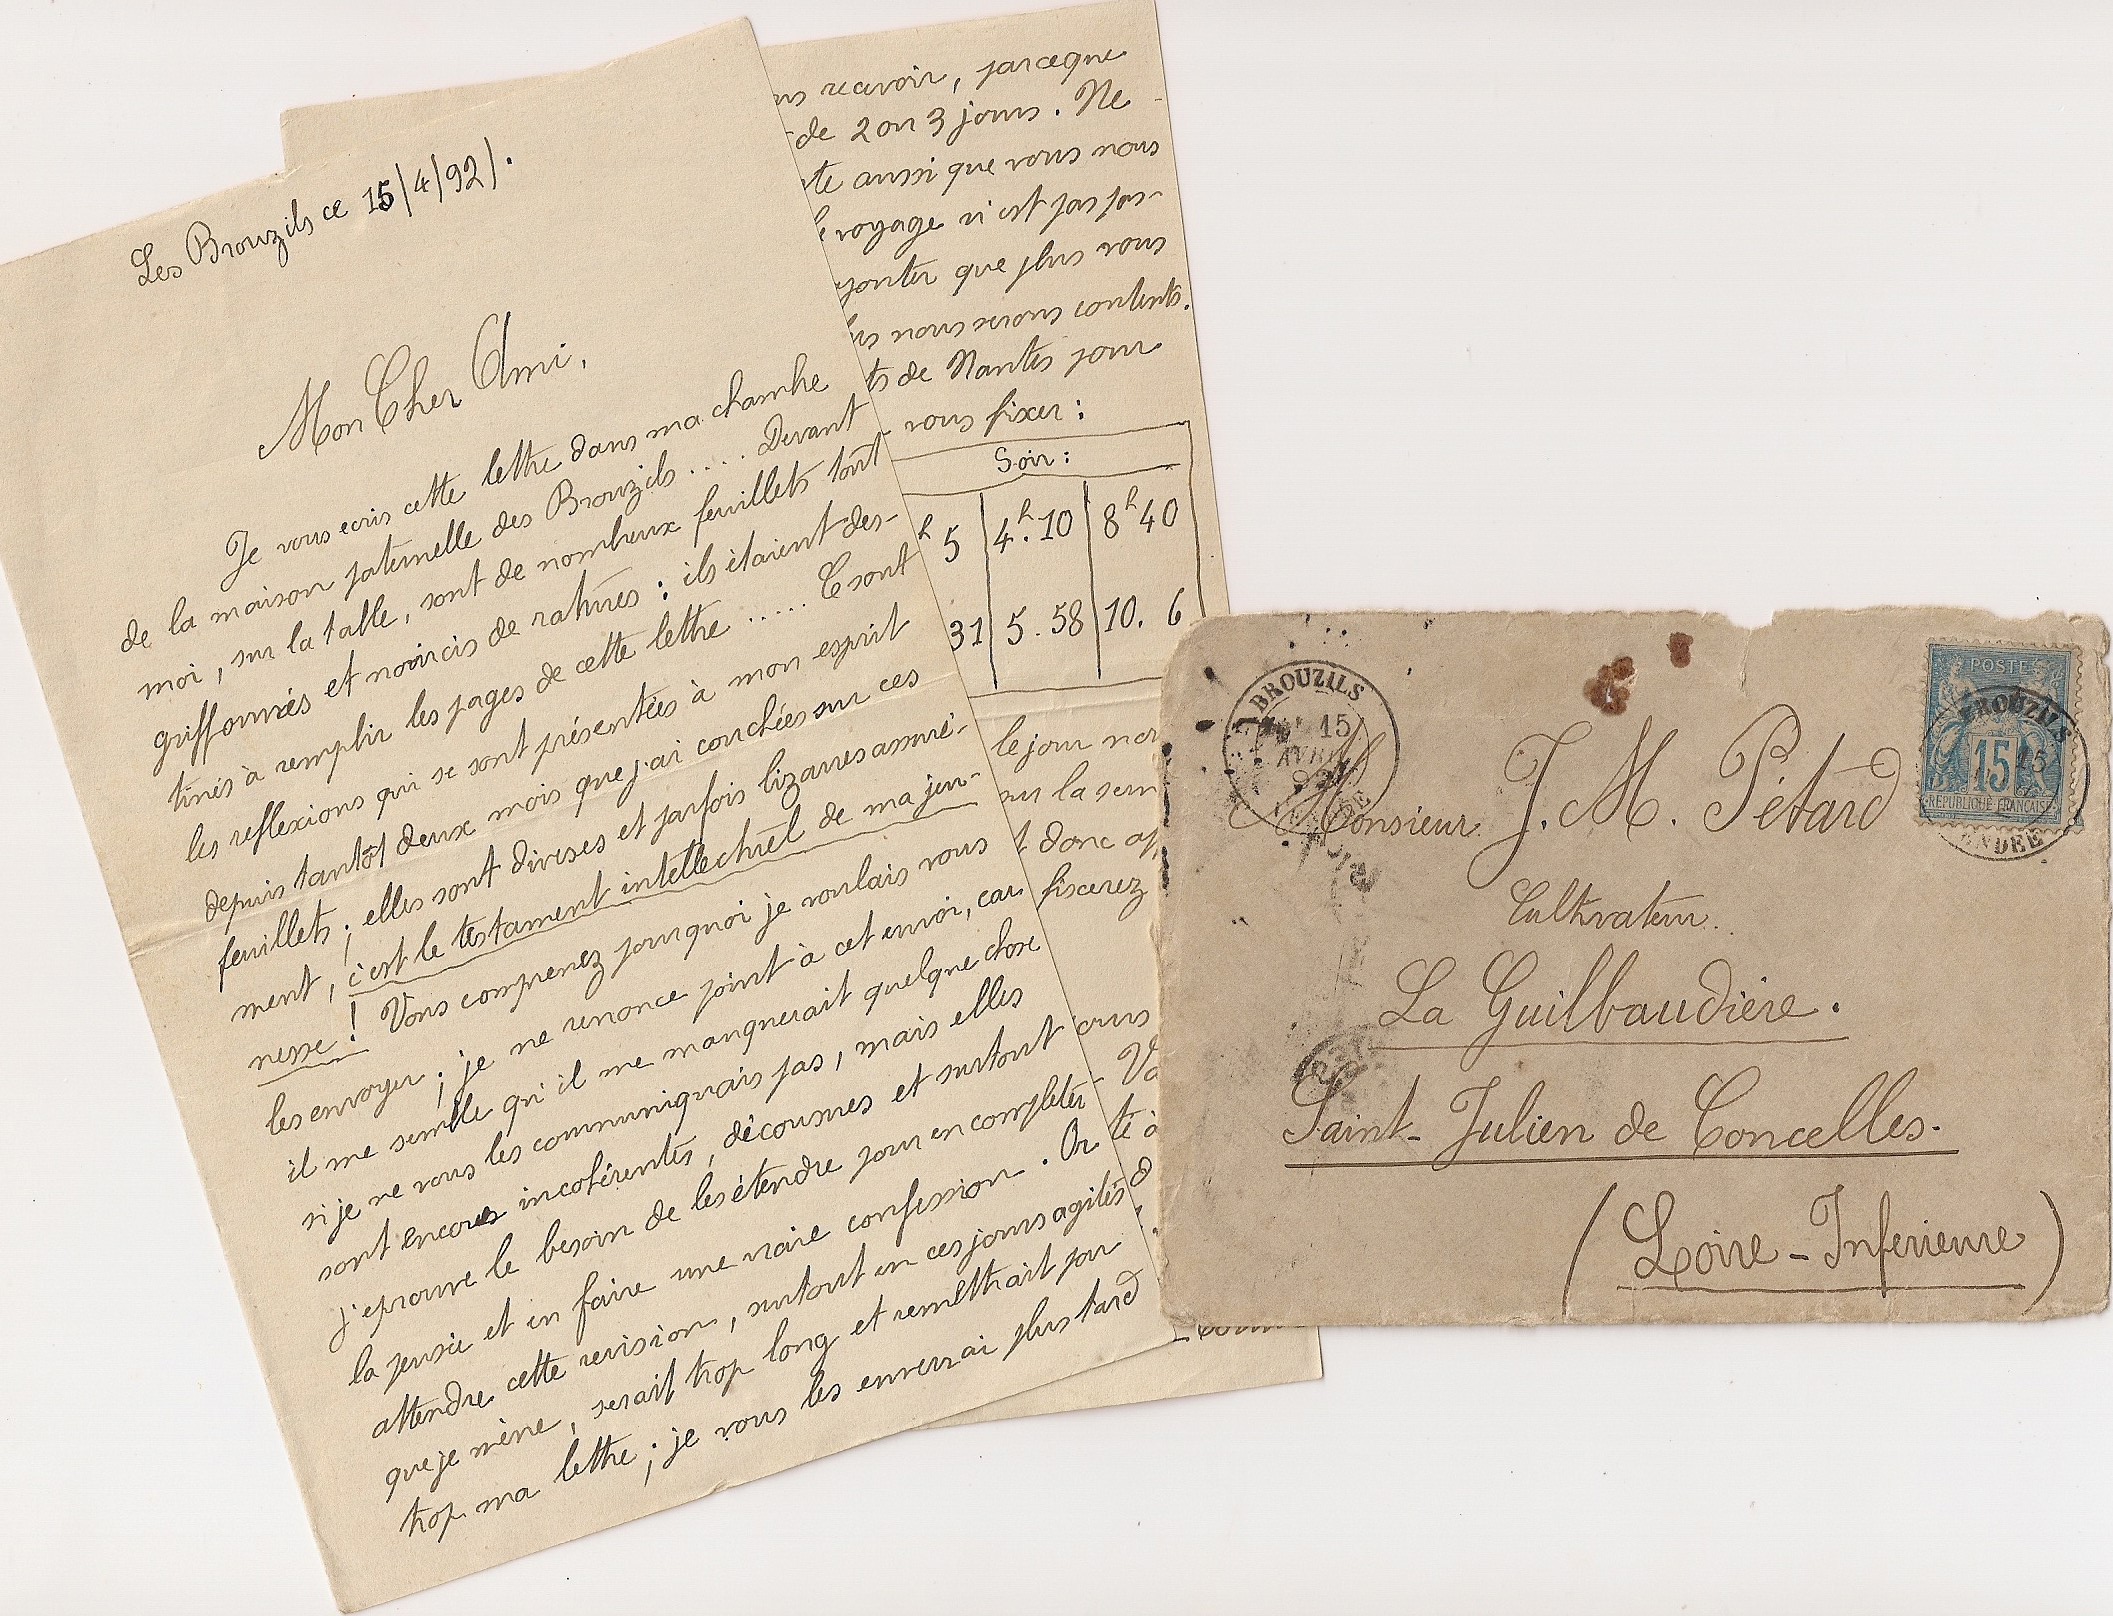 Les Brouzils ce 15/4/92/.
Mon Cher Ami,
Je vous ecris cette lettre dans ma chambre
de la maison paternelle des Brouzils ..... Devant
moi, sur la table, sont de nombreux feuillets tout
griffonnés et noircis de ratures : ils étaient des-
tinés à remplir les pages de cette lettre ...... Ce sont
les reflexions qui se sont présentées à mon esprit
depuis tantôt deux mois que j'ai couchées sur ces
feuillets ; elles sont diverses et parfois bizarres assuré-
ment, c'est le testament intellectuel de ma jeu-
nesse ! Vous comprenez pourquoi je voulais vous
les envoyer ; je ne renonce point à cet envoi, car
il me semble qu'il me manquerait quelque chose
si je ne vous les communiquais pas, mais elles
sont encore incohérentes, décousues et surtout
j'eprouve le besoin de les étendre pour en completer
la pensée et en faire une vraie confession. Or
attendre cette revision, surtout en ces jours agités
que je mène, serait trop long et remettrait par
trop ma lettre ; je vous les enverrai plus tard
recevoir, parceque
de 2 ou 3 jours. Ne
te aussi que vous nous
voyage n'est pas pas-
jouter que plus vous
nous serons contents.
de Nantes pour
vous fixer :
Soir :
h 5 | 4h.10 | 8h40
31 | 5.58 | 10. 6
le jour
sur la
donc
fixerez
BROUZILS
15
AVRIL
92
Monsieur J. M. Pétard
Cultivateur..
La Guilbaudière.
Saint-Julien de Concelles.
(Loire-Inferieure)
POSTES
15
REPUBLIQUE FRANCAISE
BROUZILS
15
VENDEE